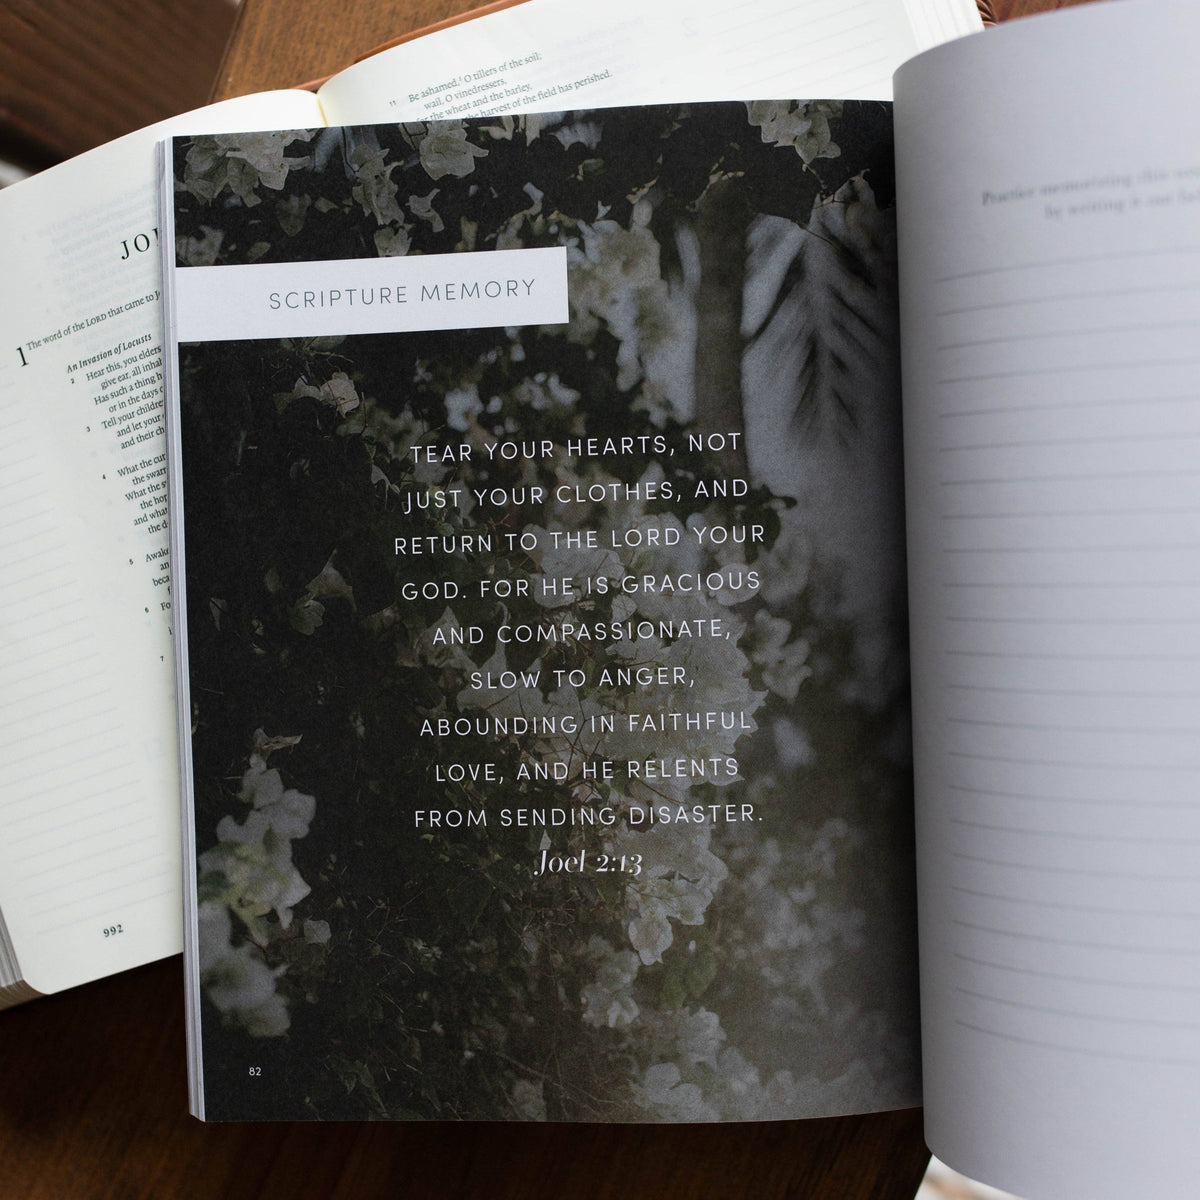 Be ashamed, O tillers of the soil;
11
wail, O vinedressers,
for the wheat and the barley,
the harvest of the field has perished.
1 The word of the LORD that came to
An Invasion of Locusts
2 Hear this, you elders
give ear, all
Has such a thing
or in the days
3 Tell your
and let your
and their
4 What the
the
What the
the
and what
the
5
6
7
992
SCRIPTURE MEMORY
TEAR YOUR HEARTS, NOT
JUST YOUR CLOTHES, AND
RETURN TO THE LORD YOUR
GOD. FOR HE IS GRACIOUS
AND COMPASSIONATE,
SLOW TO ANGER,
ABOUNDING IN FAITHFUL
LOVE, AND HE RELENTS
FROM SENDING DISASTER.
Joel 2:13
82
Practice memorizing this
by writing it out